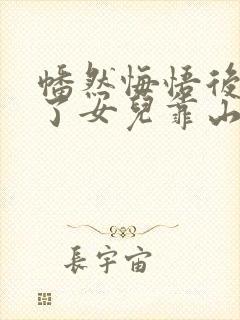 幡然悔悟後
了女兒靠山
長宇宙